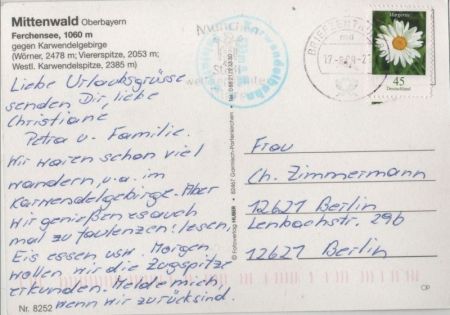 Mittenwald Oberbayern
Ferchensee, 1060 m
gegen Karwendelgebirge
(Wörner, 2478 m; Viererspitze, 2053 m;
Westl. Karwendelspitze, 2385 m)
Liebe Urlaubsgrüsse
senden Dir, liebe
Christiane
Petra u. Familie.
Wir waren schon viel
wandern, u.a. im
Karwendelgebirge. Aber
wir genießen es auch
mal zu faulenzen! lesen,
Eis essen usw. Morgen
wollen wir die Zugspitze
erkunden. Melde mich,
wenn wir zurück sind.
Nr. 8252
© Fotoverlag HUBER · 82467 Garmisch-Partenkirchen
München
BRIEFZENTRUM
Margerite
45
Deutschland
Frau
Ch. Zimmermann
12621 Berlin
Lenbachstr. 29b
12621 Berlin